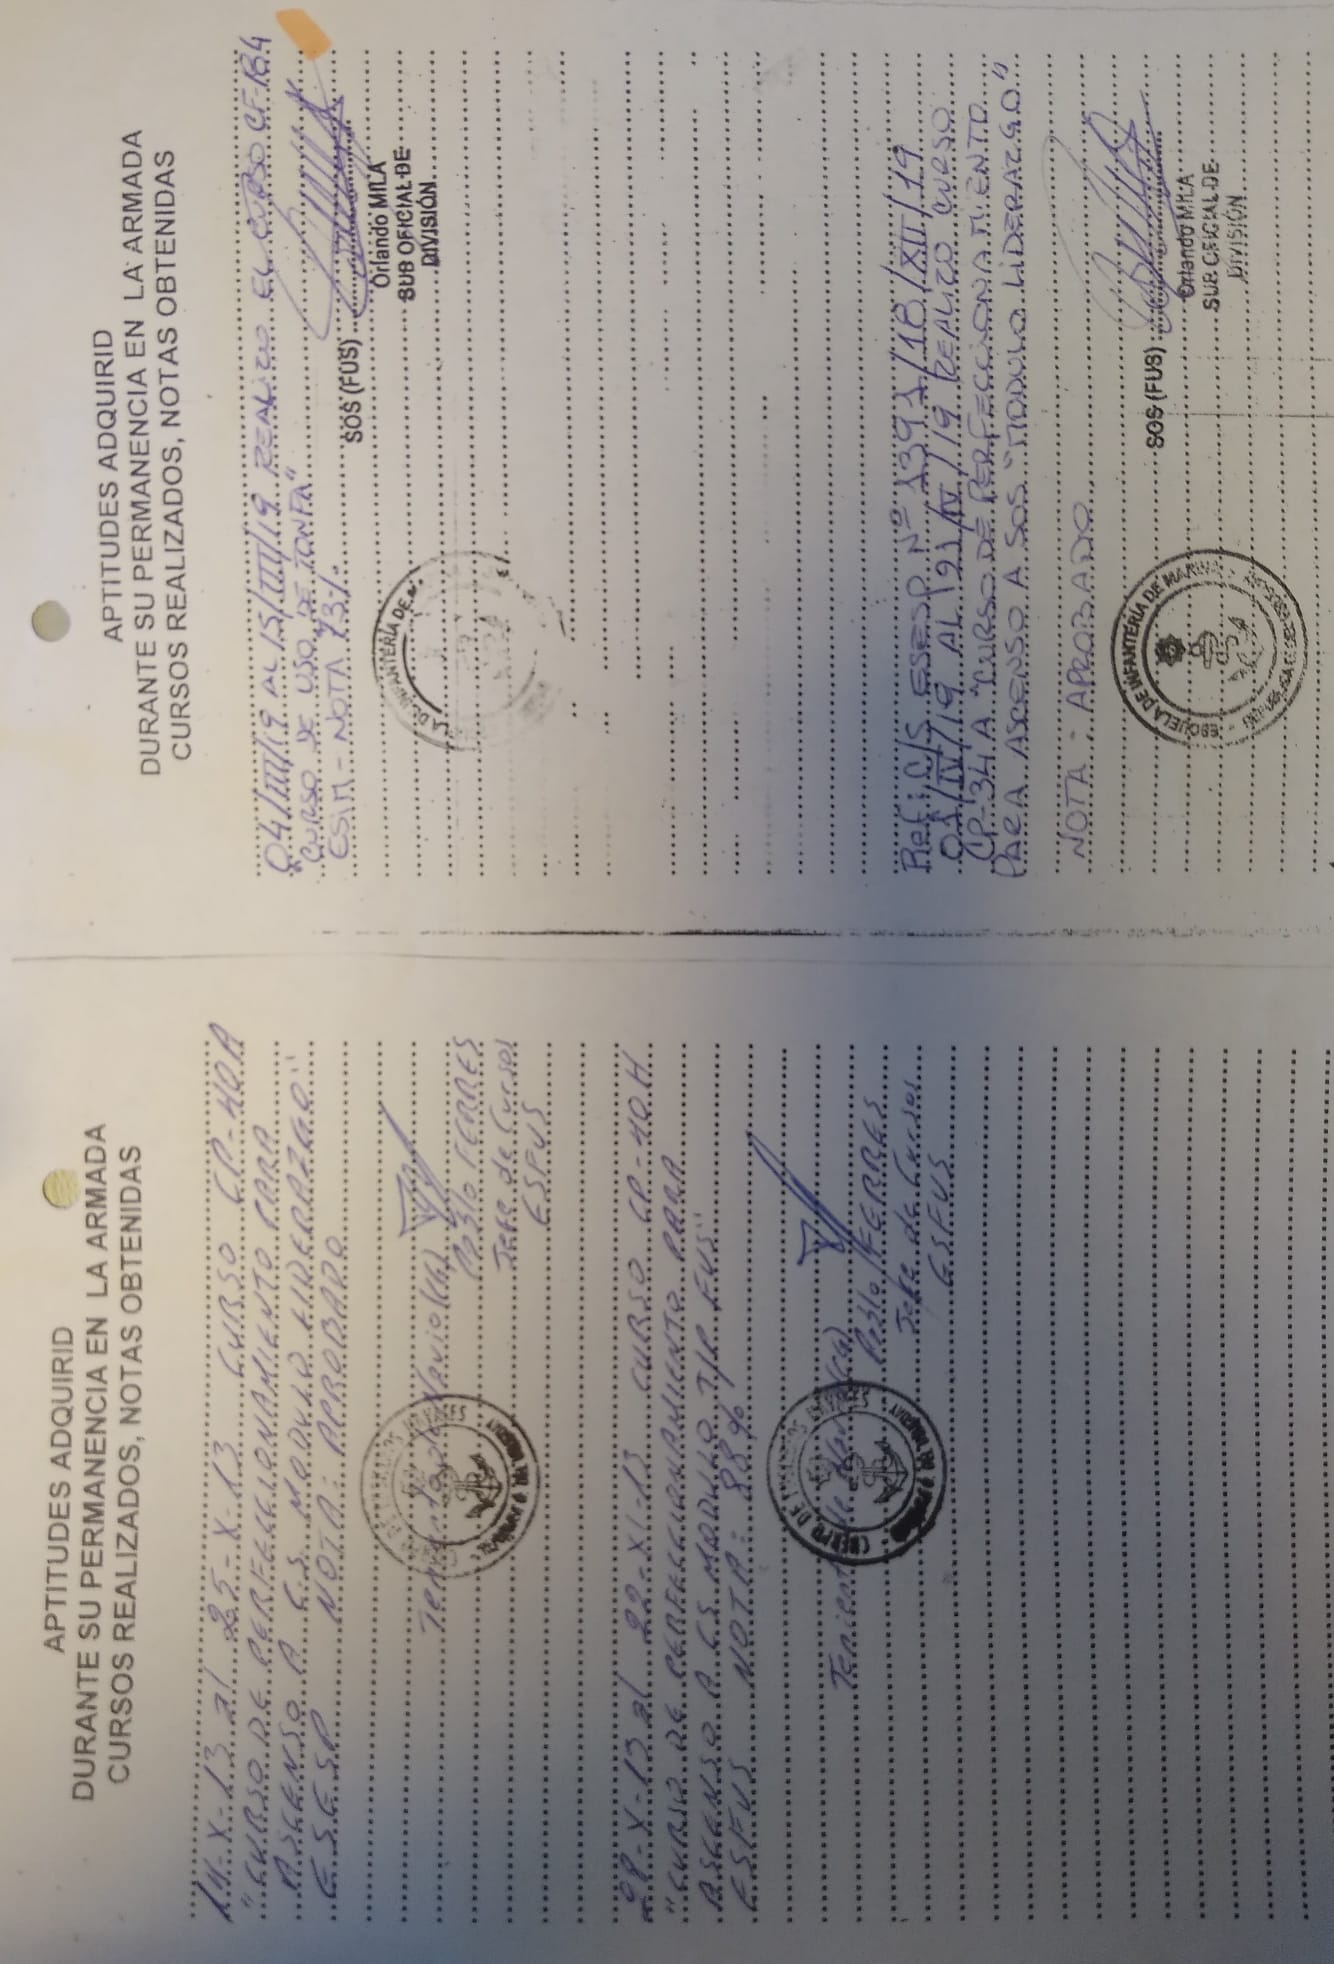 APTITUDES ADQUIRID
DURANTE SU PERMANENCIA EN LA ARMADA
CURSOS REALIZADOS, NOTAS OBTENIDAS
14-X-13 al 25-X-13 CURSO CP-40A
"CURSO DE PERFECCIONAMIENTO PARA
ASCENSO A CS MODULO LIDERAZGO"
ESESP NOTA: APROBADO
Teniente de Navio (CG)
Pablo FERRES
Jefe de Cursos
ESFUS
28-X-13 al 22-XI-13 CURSO CP-40H
"CURSO DE PERFECCIONAMIENTO PARA
ASCENSO A CS MODULO T/P FUS"
ESFUS NOTA: 88%
CUERPO DE
Teniente de Navio (CG)
Pablo FERRES
Jefe de Cursos
ESFUS
APTITUDES ADQUIRID
DURANTE SU PERMANENCIA EN LA ARMADA
CURSOS REALIZADOS, NOTAS OBTENIDAS
04/III/19 AL 15/III/19 REALIZO EL CURSO CF-184
"CURSO DE USO DE TONFA"
ESIM - NOTA 93%
SOS (FUS)
Orlando MILA
SUB OFICIAL DE
DIVISIÓN
Ref: C/S ESESP Nº 1391/18/XII/19
01/IV/19 AL /IV/19 REALIZO CURSO
CP-34 A "CURSO DE PERFECCIONAMIENTO
PARA ASCENSO A SOS "MODULO LIDERAZGO"
NOTA: APROBADO
ESCUELA DE INFANTERÍA DE MARINA
SOS (FUS)
Orlando MILA
SUB OFICIAL DE
DIVISIÓN